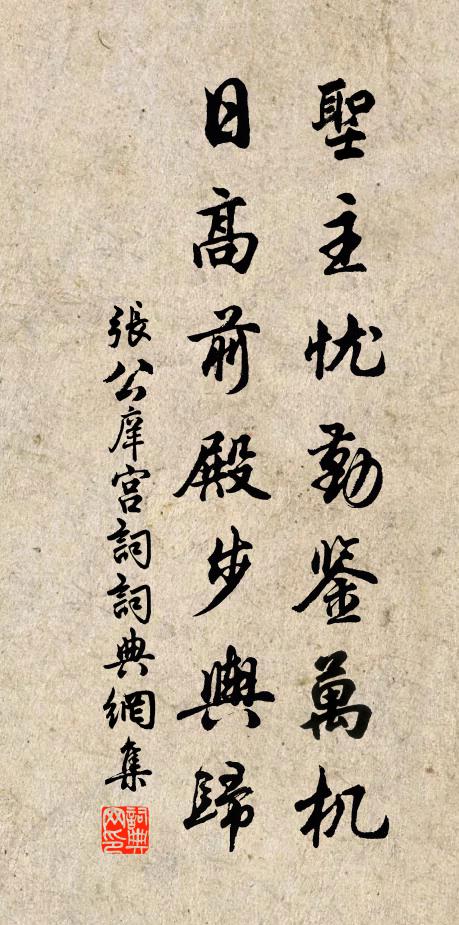 聖主忧勤鉴萬机
日高前殿步輿歸
張公庠宮詞詞典網集
詞典网印